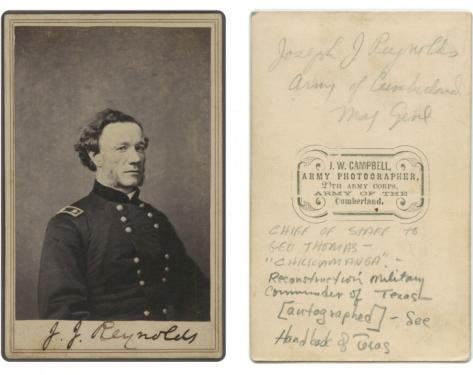 J. J. Reynolds
Joseph J Reynolds
Army of Cumberland
Maj Genl
J. W. CAMPBELL,
ARMY PHOTOGRAPHER,
20TH ARMY CORPS,
ARMY OF THE
Cumberland.
CHIEF OF STAFF TO
GEO THOMAS -
"CHICKAMAUGA" -
Reconstruction Military
Commander of Texas
[autographed] - See
Handbook of Texas